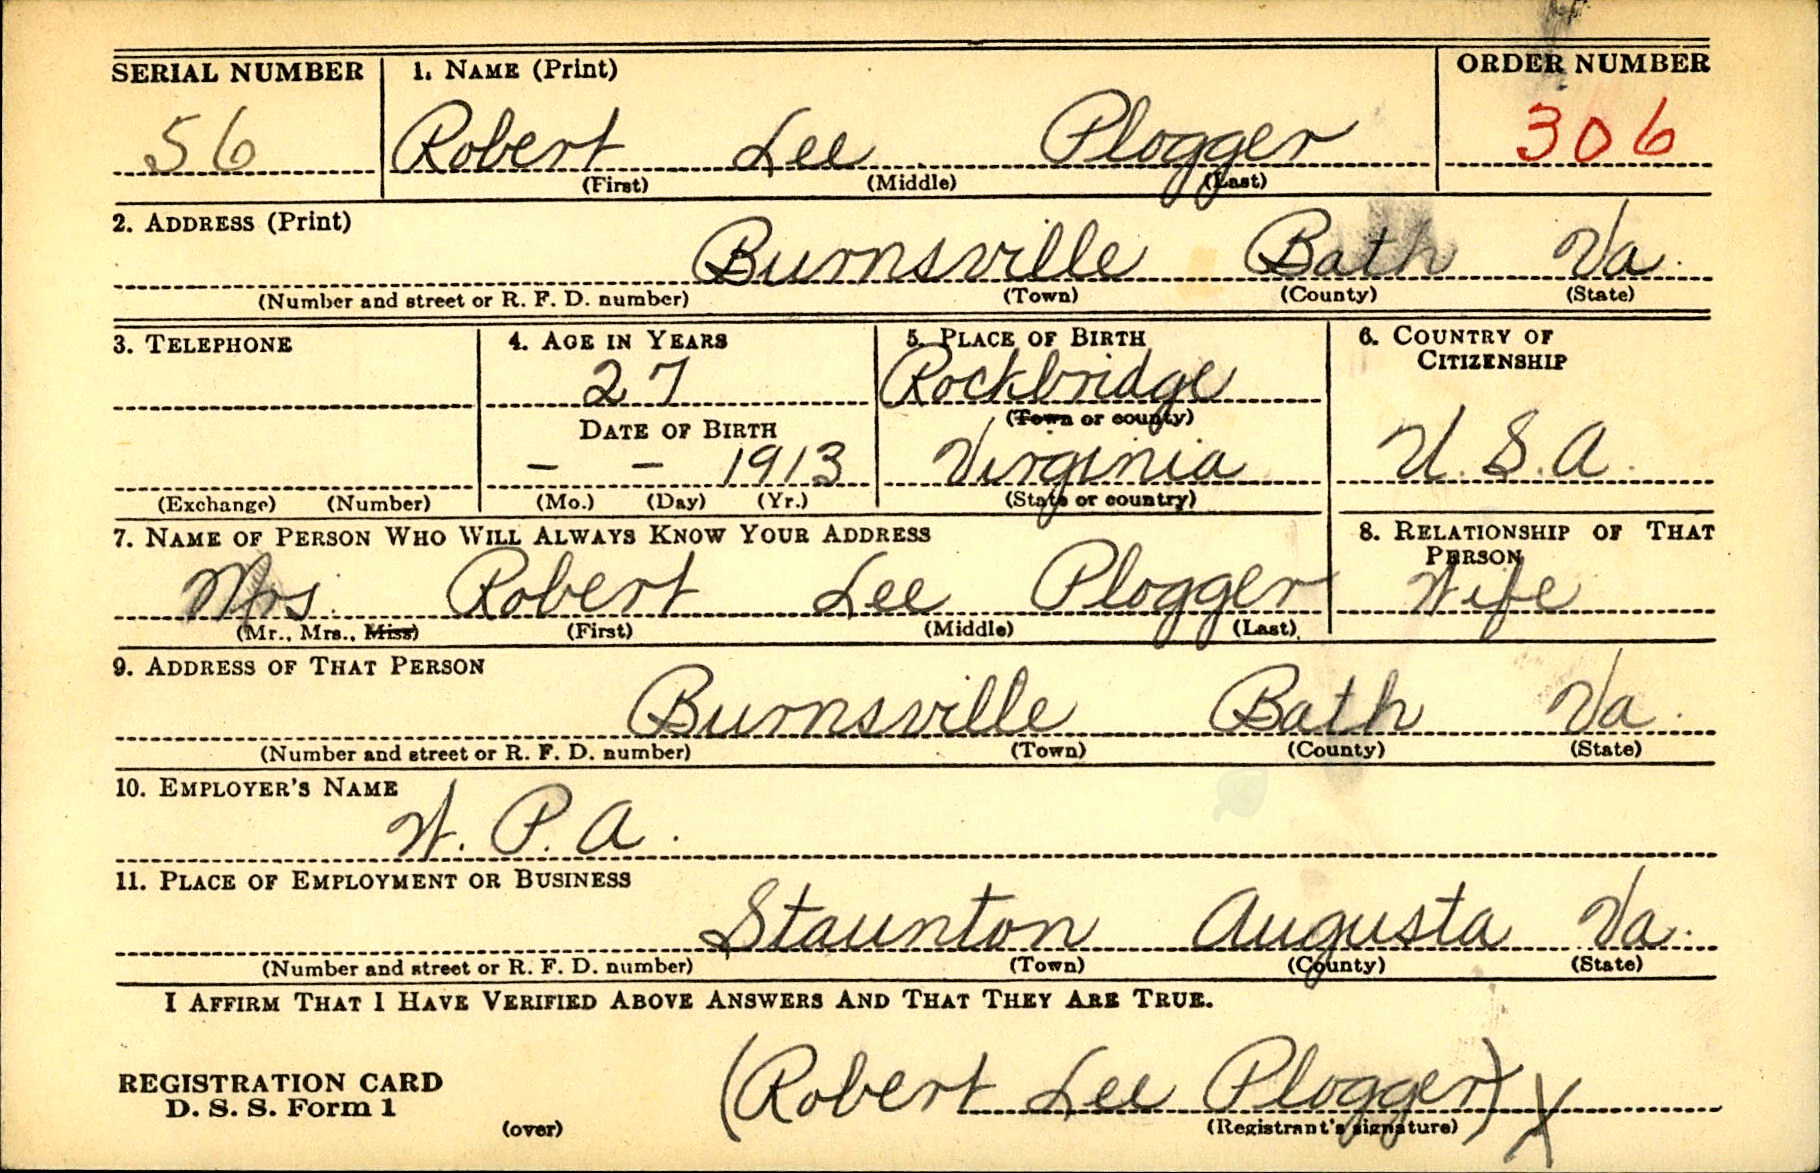 SERIAL NUMBER 1. NAME (Print) ORDER NUMBER
56 Robert Lee Plogger 306
(First) (Middle) (Last)
2. ADDRESS (Print)
Burnsville Bath Va.
(Number and street or R. F. D. number) (Town) (County) (State)
3. TELEPHONE 4. AGE IN YEARS 5. PLACE OF BIRTH 6. COUNTRY OF CITIZENSHIP
27 Rockbridge
(Town or county)
DATE OF BIRTH
– – 1913 Virginia U.S.A.
(Exchange) (Number) (Mo.) (Day) (Yr.) (State or country)
7. NAME OF PERSON WHO WILL ALWAYS KNOW YOUR ADDRESS 8. RELATIONSHIP OF THAT PERSON
Mrs. Robert Lee Plogger Wife
(Mr., Mrs., Miss) (First) (Middle) (Last)
9. ADDRESS OF THAT PERSON
Burnsville Bath Va.
(Number and street or R. F. D. number) (Town) (County) (State)
10. EMPLOYER'S NAME
W. P. A.
11. PLACE OF EMPLOYMENT OR BUSINESS
Staunton Augusta Va.
(Number and street or R. F. D. number) (Town) (County) (State)
I AFFIRM THAT I HAVE VERIFIED ABOVE ANSWERS AND THAT THEY ARE TRUE.
REGISTRATION CARD
D. S. S. Form 1
(Robert Lee Plogger) X
(over) (Registrant's signature)